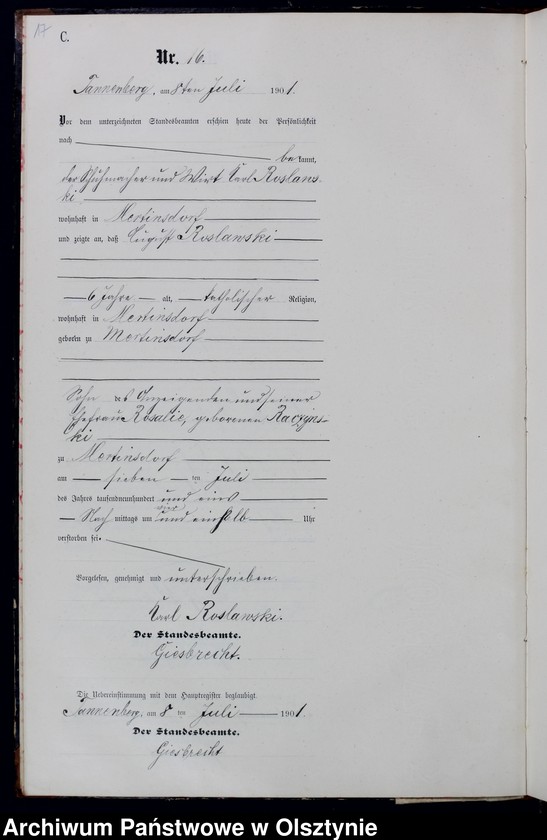 17
C.
Nr. 16.
Tannenberg, am 8ten Juli 1901.
Vor dem unterzeichneten Standesbeamten erschien heute der Persönlichkeit
nach
bekannt,
der Schuhmacher und Wirt Karl Roslaws-
ki
wohnhaft in Mertinsdorf
und zeigte an, daß August Roslawski
6 Jahre alt, katholischer Religion,
wohnhaft in Mertinsdorf
geboren zu Mertinsdorf
Sohn des Anzeigenden und seiner
Ehefrau Rosalie, geborenen Raczyns-
ki
zu Mertinsdorf
am sieben ten Juli
des Jahres tausendneunhundert und eins
Nach mittags um vier und einhalb Uhr
verstorben sei.
Vorgelesen, genehmigt und unterschrieben.
Karl Roslawski.
Der Standesbeamte.
Giesbrecht.
Die Uebereinstimmung mit dem Hauptregister beglaubigt.
Tannenberg, am 8 ten Juli 1901.
Der Standesbeamte.
Giesbrecht
Archiwum Państwowe w Olsztynie